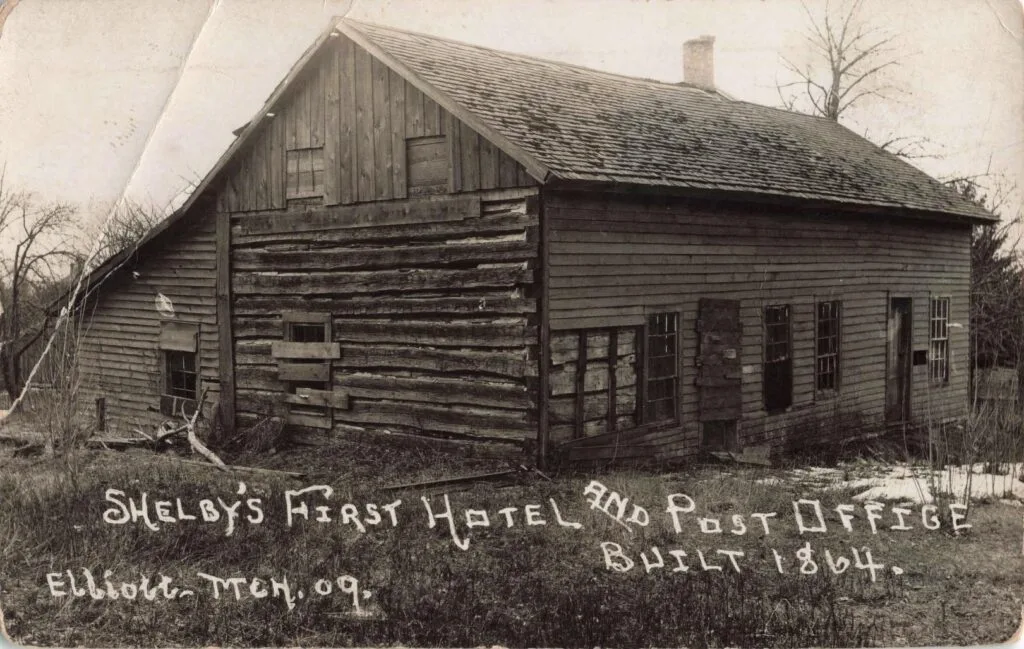 SHELBY'S FIRST HOTEL AND POST OFFICE
BUILT 1864.
Elliott- MCH. 09.